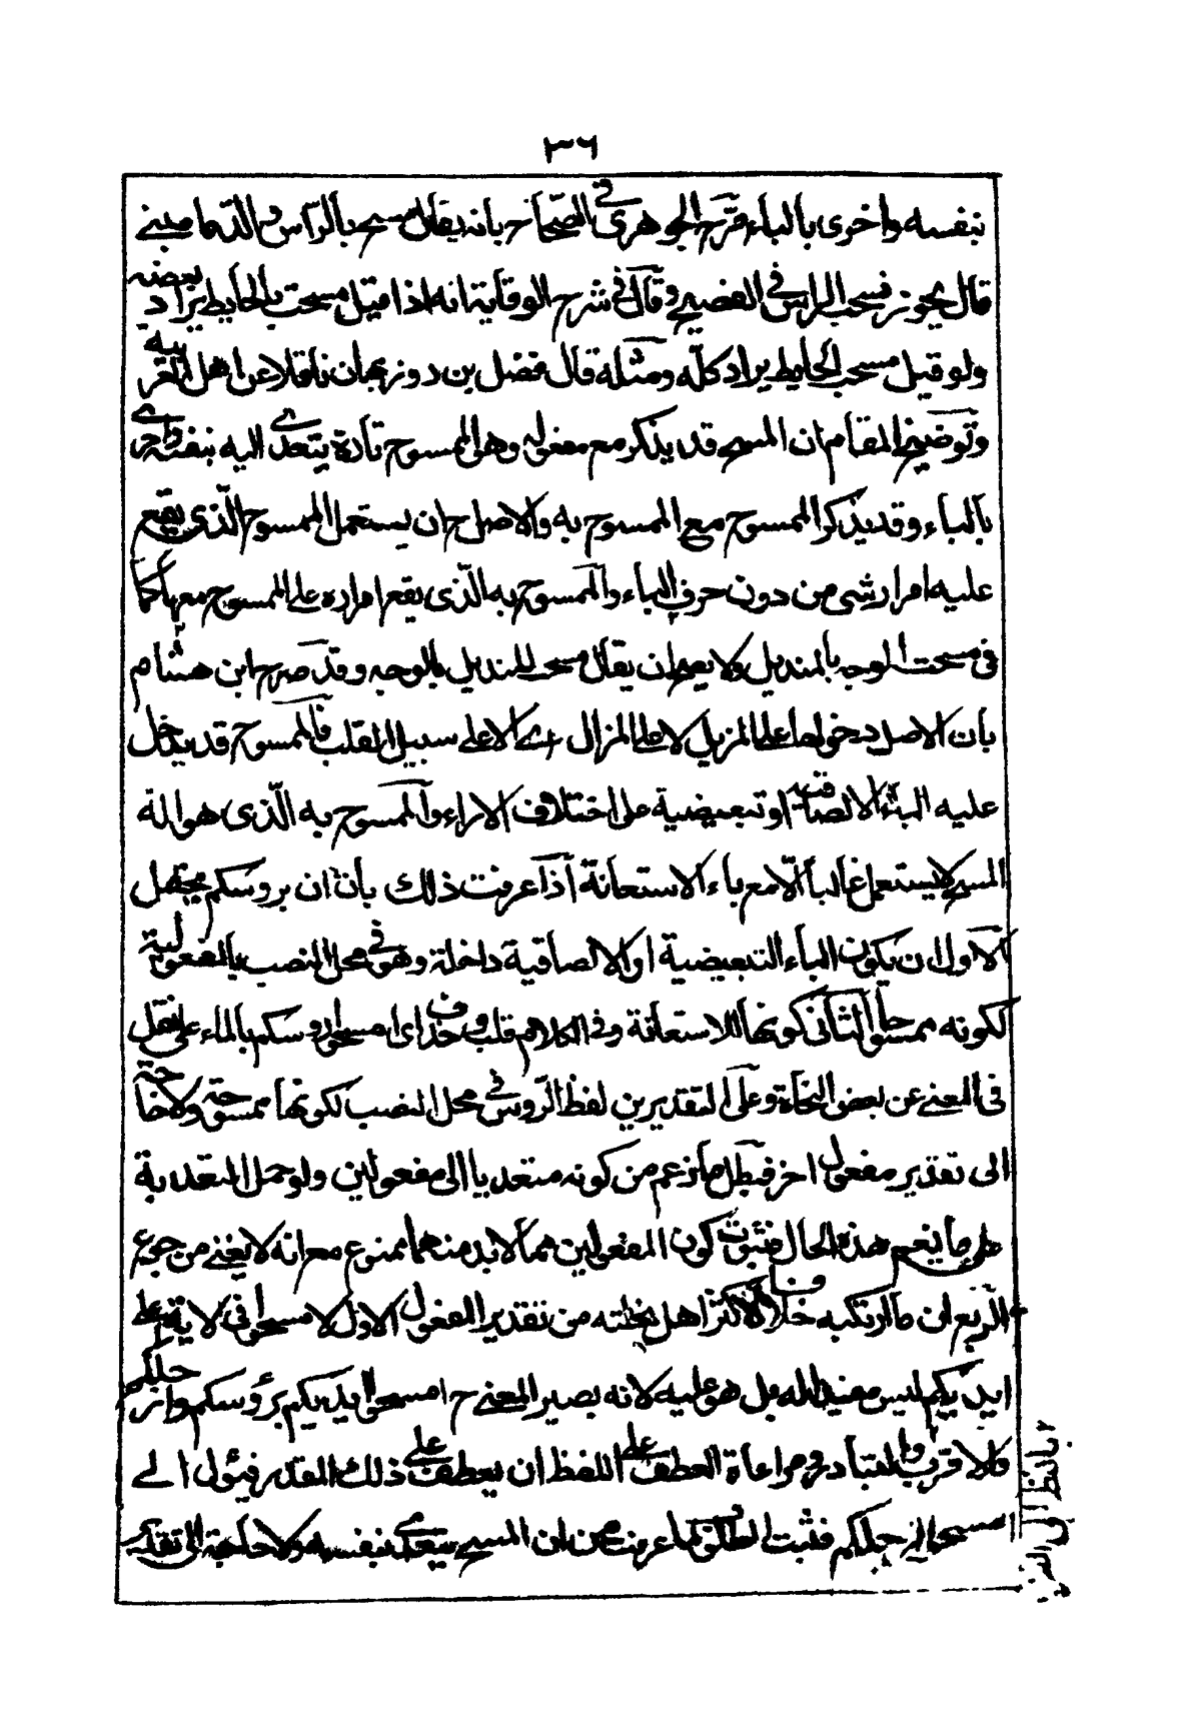 ٣٦
بنفسه واخرى بالباء صرّح الجوهرى فى الصّحاح بانه يقال مسح بالرّاس والدّماميني
قال يجوز مسح الراس فى الفصيح وقال فى شرح الوقاية انه اذا قيل مسحت بالحايط يراد بعضه
ولو قيل مسحت الحايط يراد كلّه ومثله قال فضل بن دوزبهان ناقلا عن اهل العربية
وتوضيح المقام ان المسح قد يذكر مع مفعوله وهى الممسوح تارة يتعدى اليه بنفسه واخرى
بالباء وقد يذكر الممسوح مع الممسوح به والاصل ان يستعمل الممسوح الّذى يقع
عليه امرار شى من دون حرف الباء والممسوح به الّذى يقع امراره على الممسوح معها كما
فى مسحت الوجه بالمنديل ولا يصح ان يقال مسحت المنديل بالوجه وقد صرح ابن هشام
بان الاصل دخولها على المزيل لا على المزال اى الا على سبيل القلب فالممسوح قد يدخل
عليه الباء الالصاقية او تبعيضية على اختلاف الاراء والممسوح به الّذى هو الة
المسح لا يستعمل غالبا الّا مع باء الاستعانة اذا عرفت ذلك بان ان بروسكم يحتمل
الاول ان يكون الباء التبعيضية او الالصاقية داخلة وهو فى محل النصب بالمفعولية
لكونه ممسوحا الثانى كونها للاستعانة وفى الكلام قلب وحذف اى امسحوا روسكم بالماء على نقل
فى المعنى عن بعض النحاة وعلى التقديرين لفظ الرّوس فى محل النصب لكونها ممسوحة ولا حاجة
الى تقدير مفعول اخر فبطل ما زعم من كونه متعديا الى مفعولين ولو حمل التعدية
على ما يعم هذه الحال فثبوت كون المفعولين مما لابد منهما ممنوع مع انه لا يغنى من جوع
الّذيع ان ما ارتكبه خلافا لاكثر اهل نحلته من تقدير المفعول الاول لامسحوا فى الاية على
ايديكم ليس مفيدا له بل هو عليه لانه يصير المعنى ح امسحوا ايديكم برؤسكم وارجلكم
والاقرب والمتبادر فى مراعاة العطف على اللفظ ان يعطف على ذلك المقدر فيئول الى
امسحوا ارجلكم فثبت المطلوق كما عرفت من ان المسح يتعدى بنفسه ولا حاجة الى تقدير